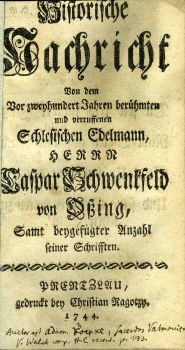 Historische
Nachricht
Von dem
Vor zweyhundert Jahren berühmten
und verruffenen
Schlesischen Edelmann,
HERRN
Caspar Schwenkfeld
von Oßing,
Samt beygefügter Anzahl
seiner Schrifften.
PRENZLAU,
gedruckt bey Christian Ragoczy.
1744.
Auctor est Adam.
V. Walch
p. 133.